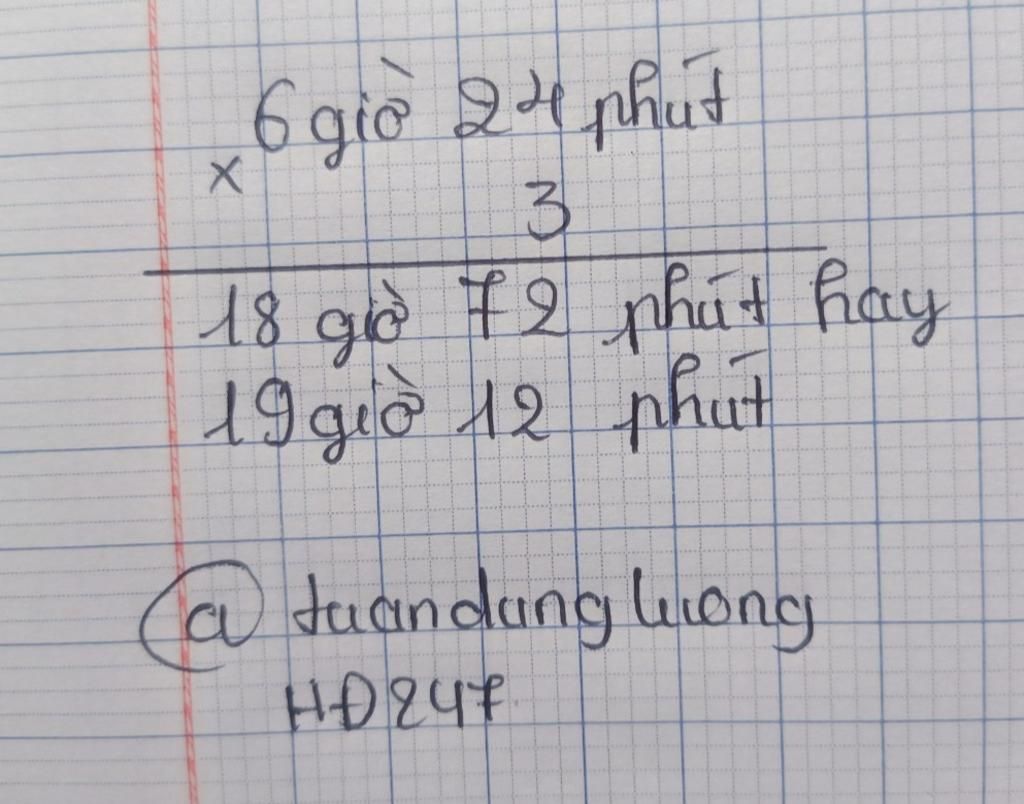 6 giờ 24 phút
x
3
18 giờ 72 phút hay
19 giờ 12 phút
@ tuandungluong
HĐ247